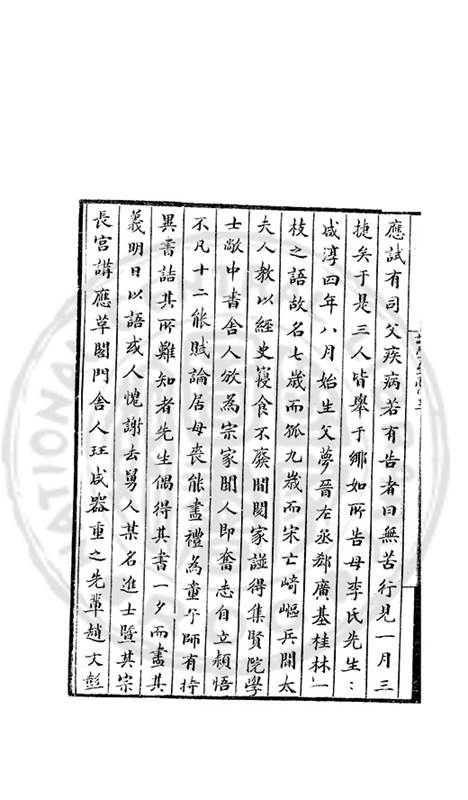 應試有司父疾病若有告者曰無苦行見一月三
捷矣于是三人皆舉于鄉如所告母李氏先生:
咸淳四年八月始生父夢晉左丞郄廣基桂林一
枝之語故名七歲而孤九歲而宋亡崎嶇兵間太
夫人教以經史寢食不廢間閱家譜得集賢院學
士敞中書舍人攽為宗家聞人即奮志自立穎悟
不凡十二能賦論居母喪能盡禮為童子師有持
異書詰其所難知者先生偶得其書一夕而盡其
義明日以語或人愧謝去舅人某名進士暨其宗
長官講應草閣門舍人珏咸器重之先輩趙文彭